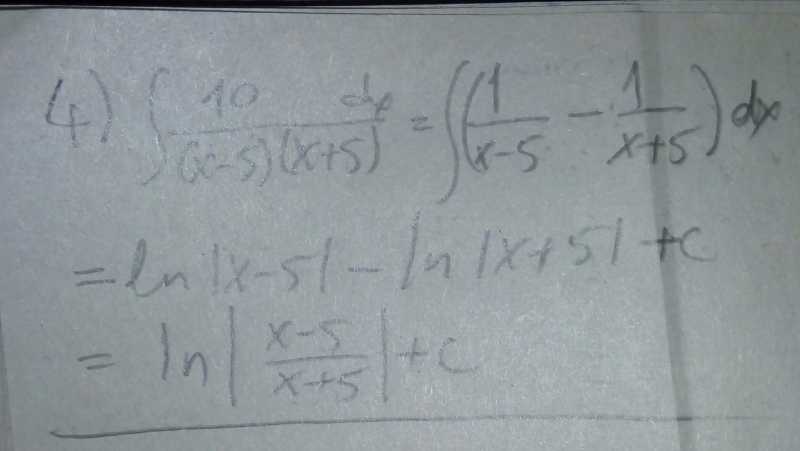 4) ∫ 10 dx / (x-5)(x+5) = ∫ (1/(x-5) - 1/(x+5)) dx
= ln |x-5| - ln |x+5| + c
= ln | (x-5)/(x+5) | + c